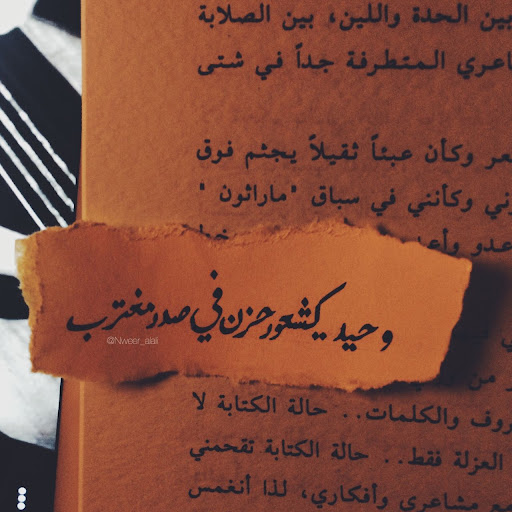 بين الحدة واللين، بين الصلابة
عري المتطرفة جداً في شتى
عر وكأن عبئاً ثقيلاً يجثم فوق
ني وكأنني في سباق "ماراثون"
عدو
وحيد كشعور حزن في صدر مغترب
@Nweer_alali
من
روف والكلمات.. حالة الكتابة لا
العزلة فقط.. حالة الكتابة تقحمني
ع مشاعري وأفكاري، لذا أنغمس